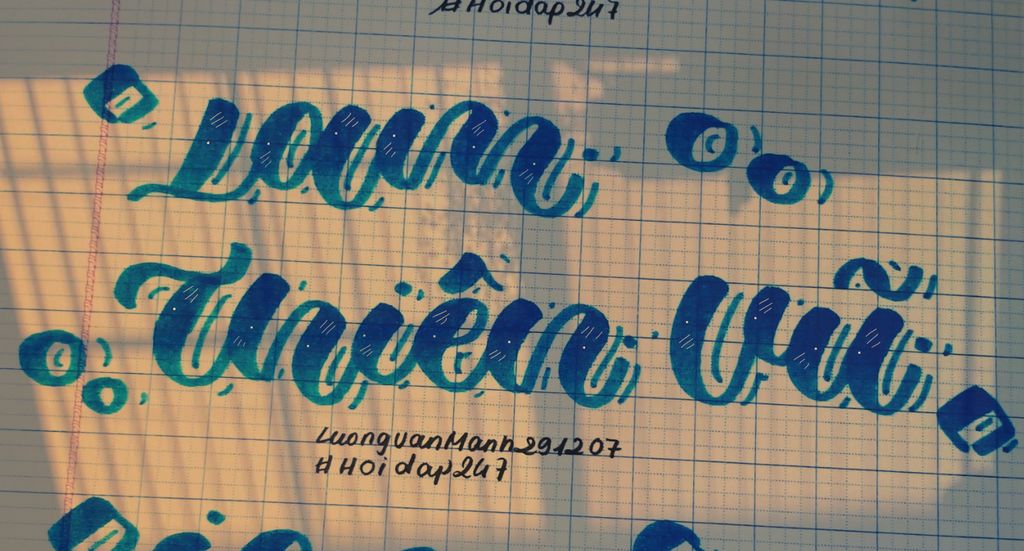 #Hoidap247
Thiên Vũ
LuongvanManh291207
#Hoidap247